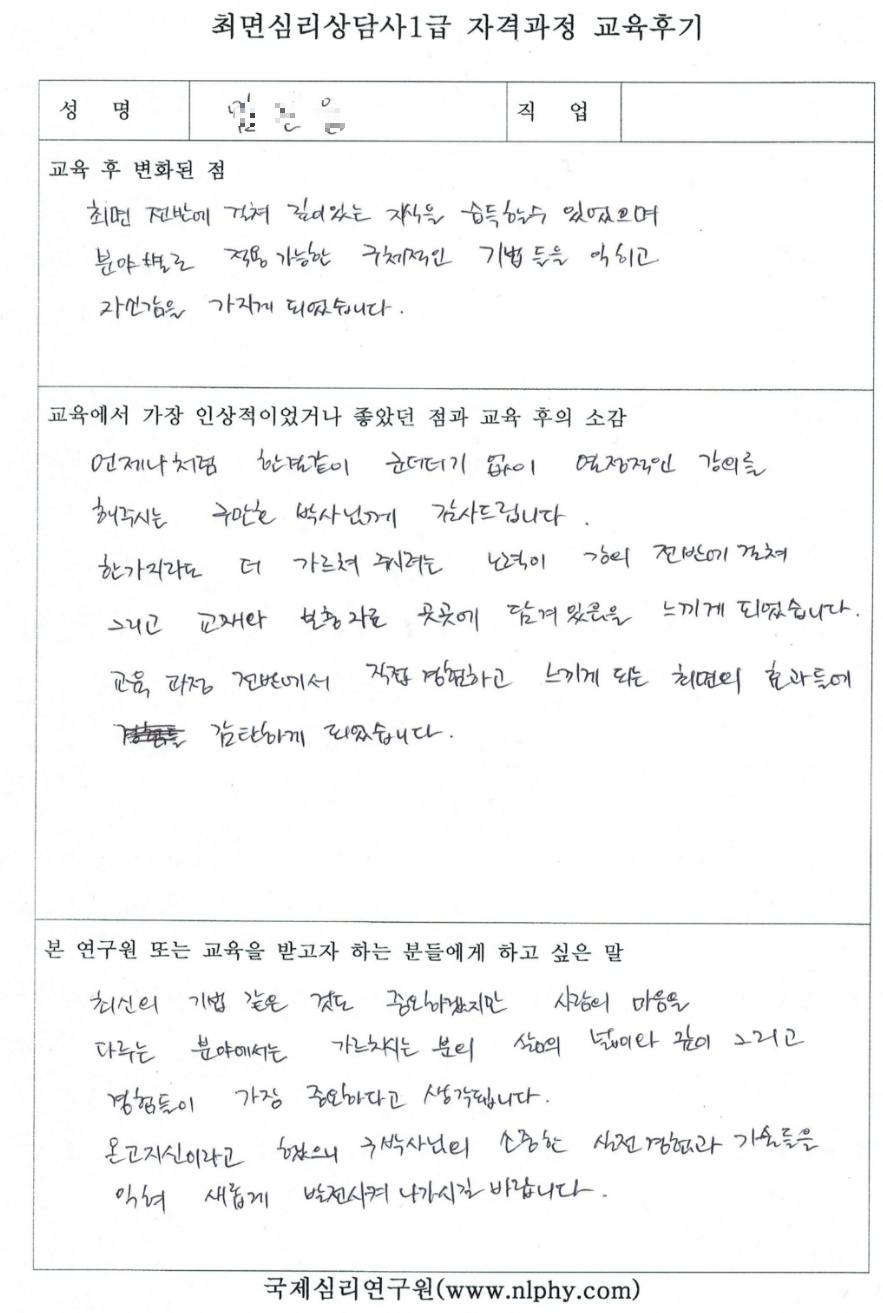 최면심리상담사1급 자격과정 교육후기
성 명 직 업
교육 후 변화된 점
최면 전반에 걸쳐 깊이있는 지식을 습득할수 있었으며
분야별로 적용가능한 구체적인 기법들을 익히고
자신감을 가지게 되었습니다.
교육에서 가장 인상적이었거나 좋았던 점과 교육 후의 소감
언제나처럼 한결같이 군더더기 없이 열정적인 강의를
해주시는 구만호 박사님께 감사드립니다.
한가지라도 더 가르쳐 주시려는 노력이 강의 전반에 걸쳐
그리고 교재와 보충자료 곳곳에 담겨있음을 느끼게 되었습니다.
교육 과정 전반에서 직접 경험하고 느끼게 되는 최면의 효과들에
감탄하게 되었습니다.
본 연구원 또는 교육을 받고자 하는 분들에게 하고 싶은 말
최신의 기법 같은 것도 중요하겠지만 사람의 마음을
다루는 분야에서는 가르치시는 분의 삶의 넓이와 깊이 그리고
경험들이 가장 중요하다고 생각됩니다.
온고지신이라고 했으니 구박사님의 소중한 실전경험과 기술들을
익혀 새롭게 발전시켜 나가시길 바랍니다.
국제심리연구원(www.nlphy.com)